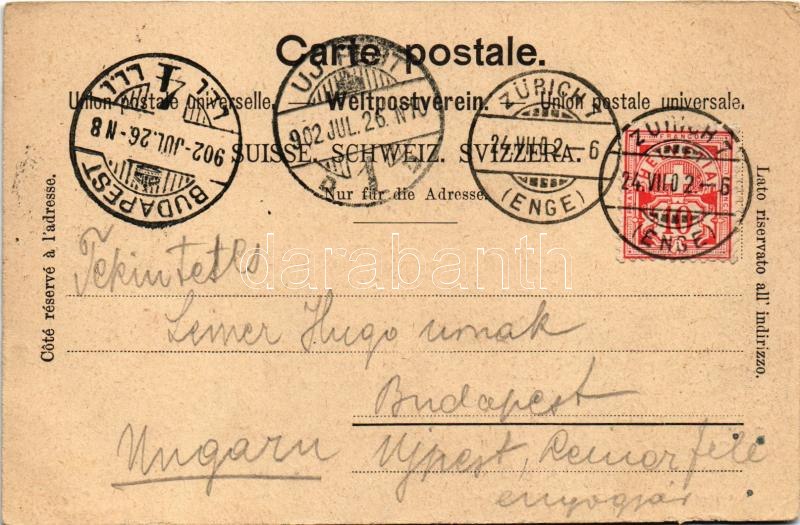 Carte postale.
Union postale universelle. — Weltpostverein. — Union postale universale.
SUISSE. SCHWEIZ. SVIZZERA.
Nur für die Adresse.
Côté réservé à l'adresse.
Lato riservato all' indirizzo.
BUDAPEST
902-JUL.26-N8
I
UJPEST
902 JUL. 26. N10
1
ZÜRICH 7
24.VII.02.-6
(ENGE)
ZÜRICH 7
24.VII.02.-6
(ENGE)
FRANCO
HELVETIA
10
darabanth
Tekintetes
Lemer Hugo urnak
Budapest
Ungarn
Ujpest, Leinerféle
enyvgyár